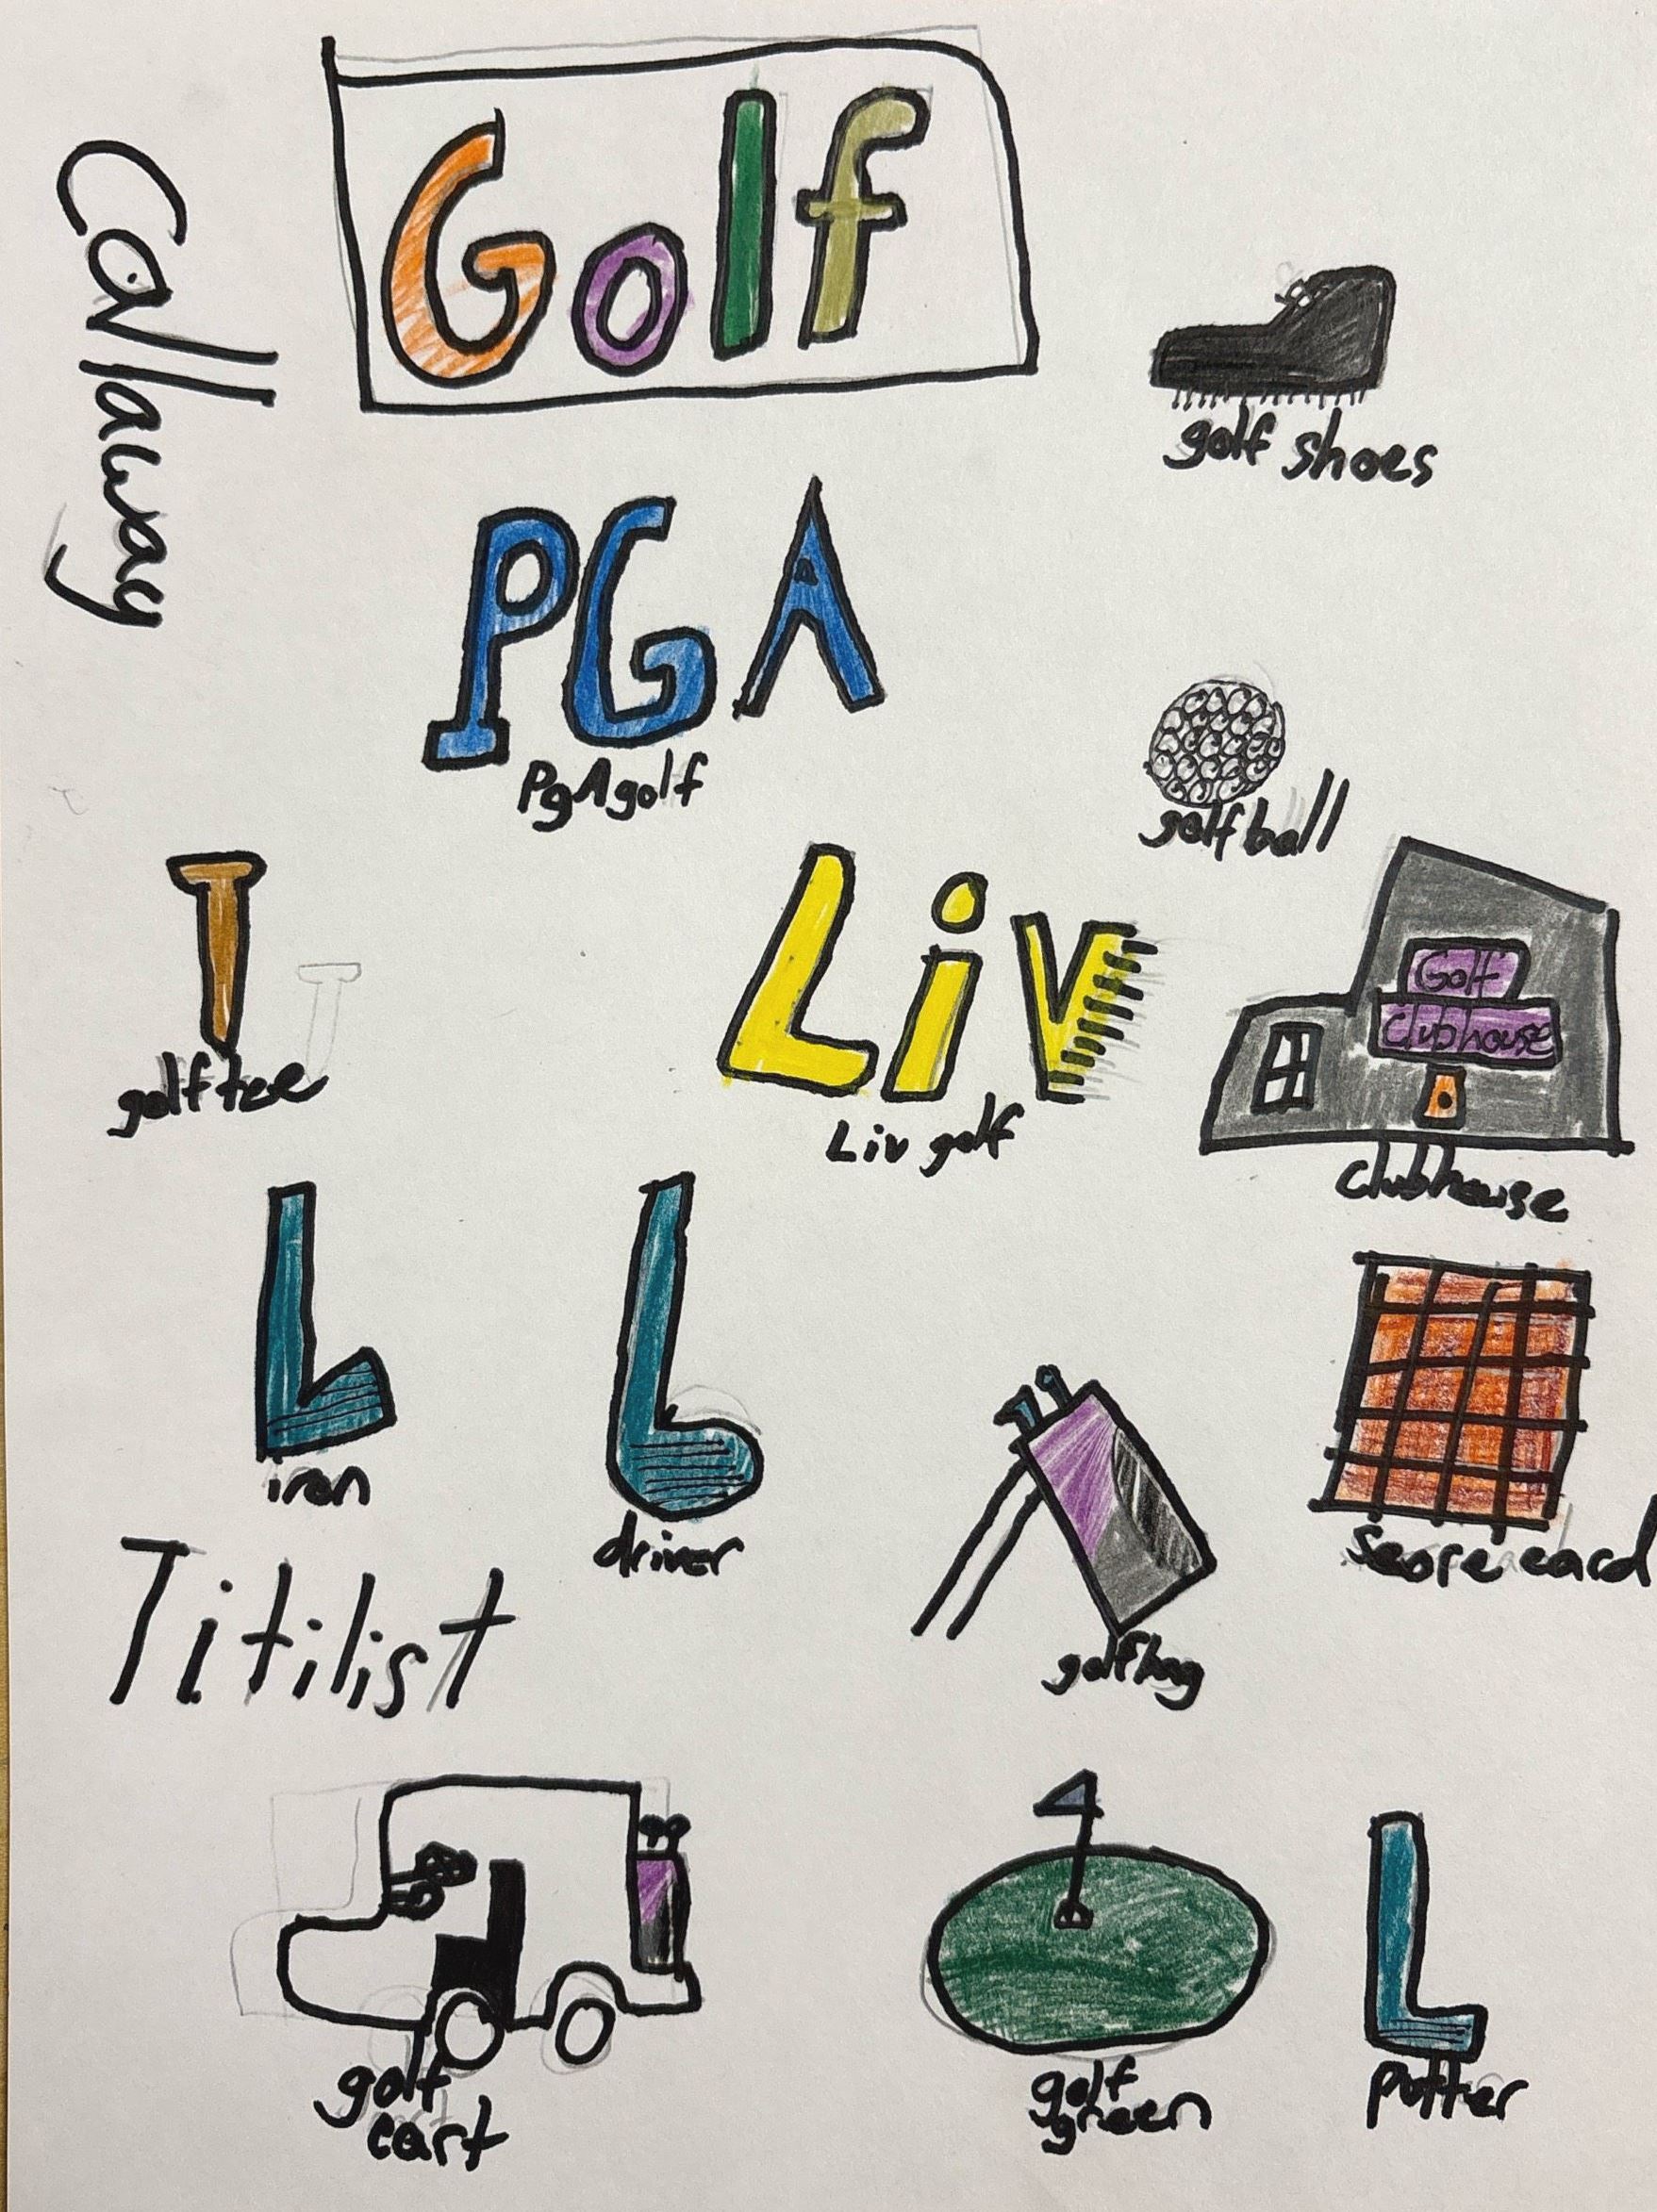 Golf
Callaway
golf shoes
PGA
PgAgolf
golf ball
Liv
Liv golf
Golf
clubhouse
Clubhouse
golf tee
iron
driver
score card
Titilist
golf bag
golf
cart
golf
green
putter